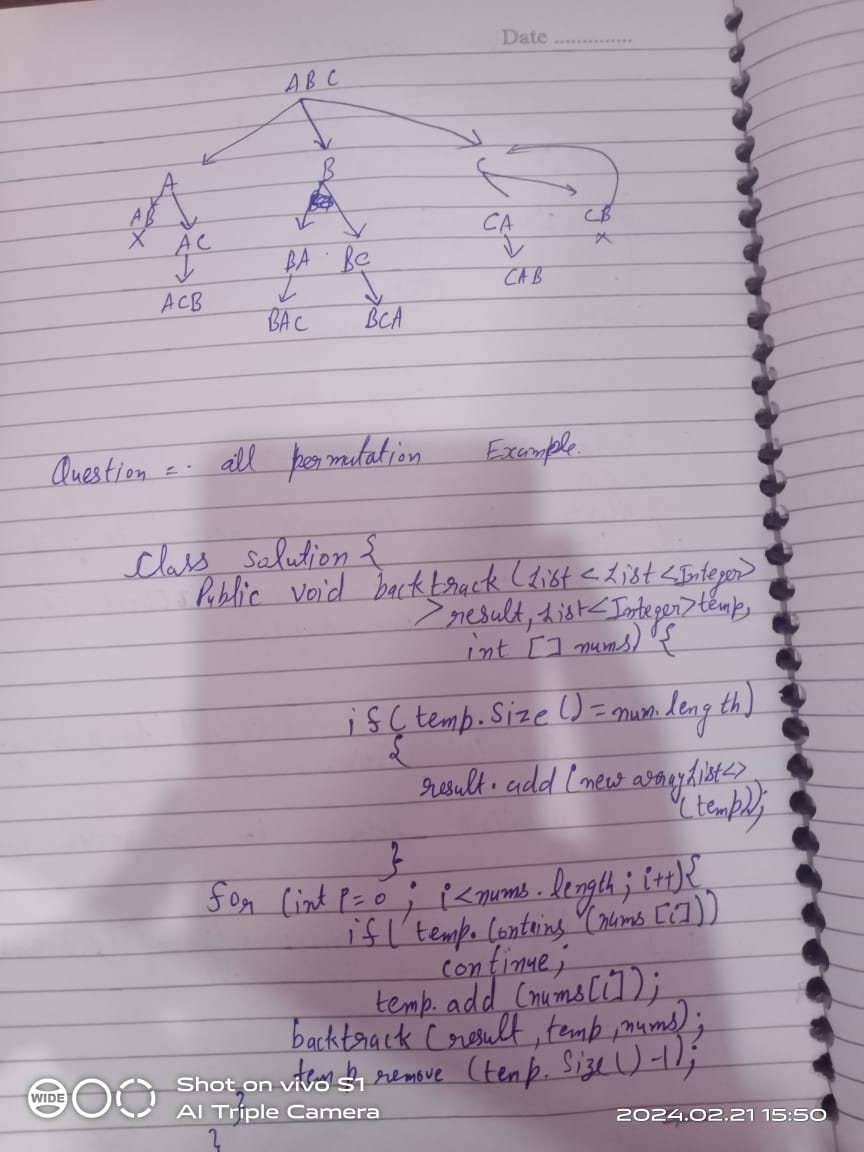 Date ..............
A B C
A B C
AB AC BA BC CA CB
X X
ACB BAC BCA CAB
Question =. all permutation Example.
Class solution {
Public void backtrack (List <List <Integer>
> result, List<Integer> temp,
int [] nums) {
if ( temp. Size () = num. length)
{
result. add (new arrayList<>
(temp));
}
for (int i = 0 ; i < nums. length ; i++) {
if ( temp. Contains (nums [i])
continue ;
temp. add (nums [i]) ;
backtrack ( result , temp , nums) ;
temp remove (temp. Size () -1) ;
}
}
WIDE Shot on vivo S1
AI Triple Camera
2024.02.21 15:50